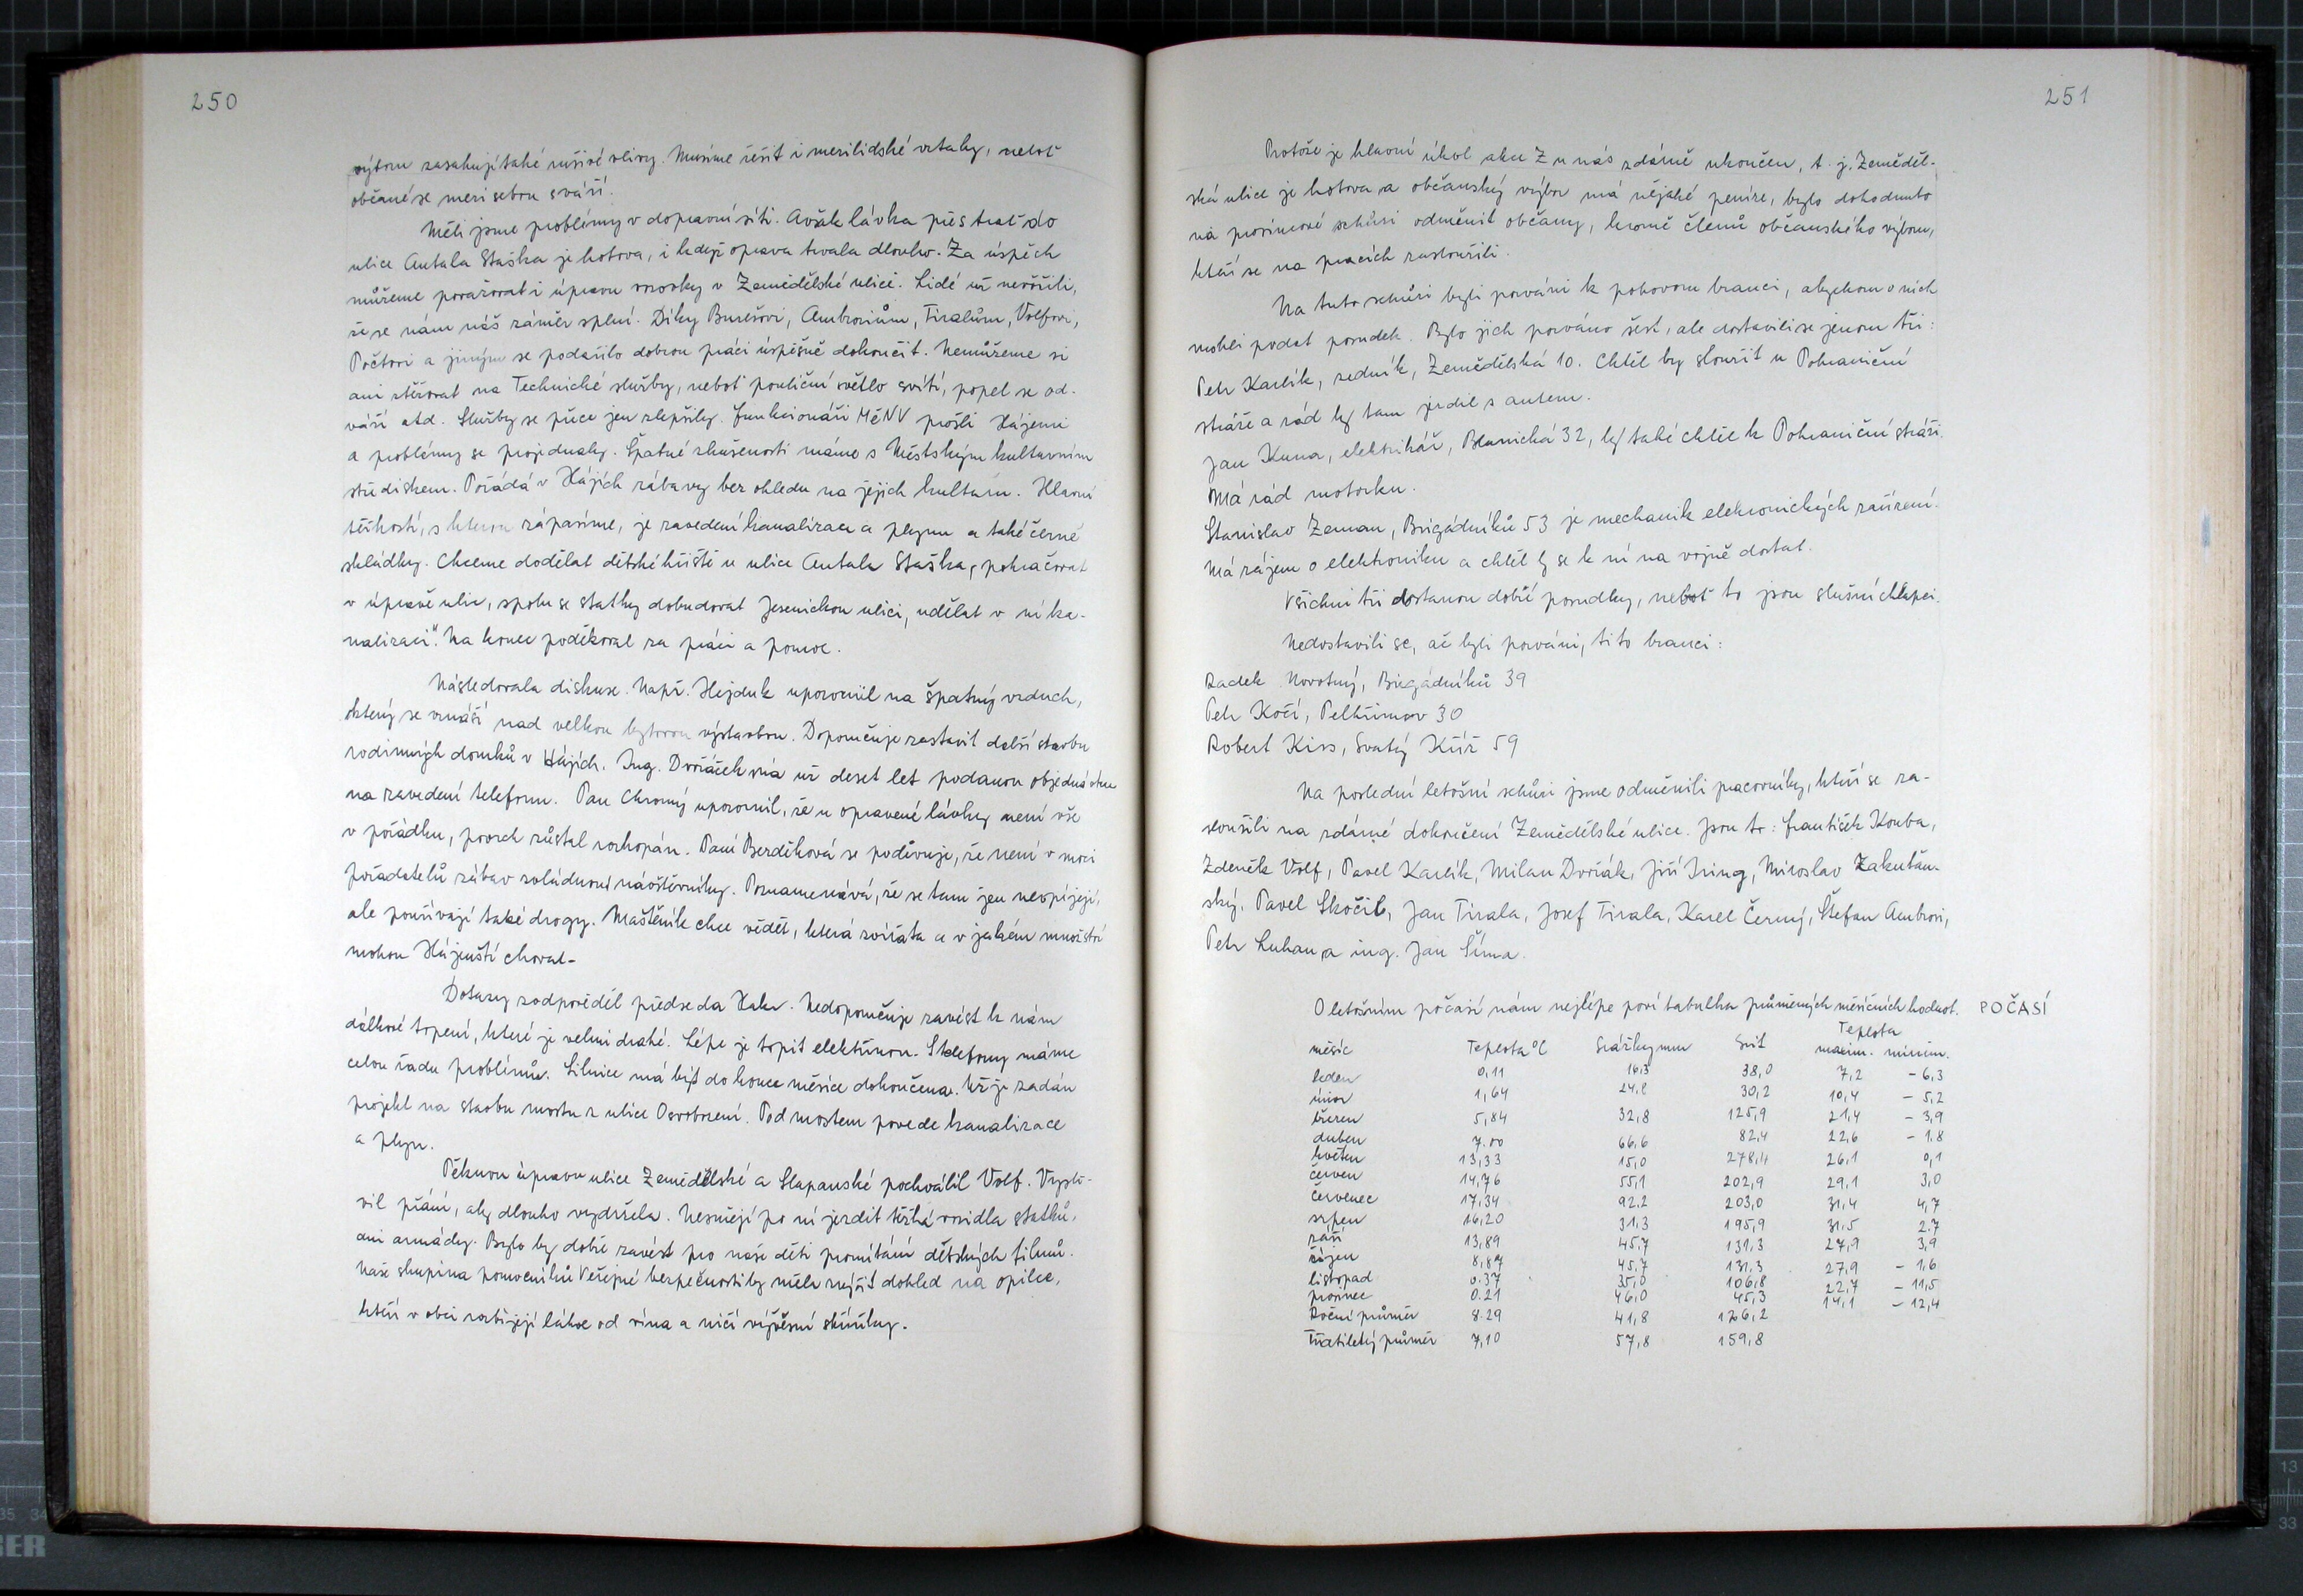 250
výboru zasahují také rušivé vlivy. Musíme řešit i mezilidské vztahy, neboť
občané se mezi sebou sváří.
Měli jsme problémy v dopravní síti. Avšak lávka přes trať do
ulice Antala Staška je hotova, i když oprava trvala dlouho. Za úspěch
můžeme považovat i úpravu vozovky v Zemědělské ulici. Lidé už nevěřili,
že se nám náš záměr splní. Díky Burešovi, Ambroziům, Tiralům, Volfovi,
Počtovi a jiným se podařilo dobrou práci úspěšně dokončit. Nemůžeme si
ani stěžovat na Technické služby, neboť pouliční světlo svítí, popel se od-
váží atd. Služby se přece jen zlepšily. Funkcionáři MěNV prošli Hájemi
a problémy se projednaly. Špatné zkušenosti máme s Městským kulturním
střediskem. Pořádá v Hájích zábavy bez ohledu na jejich kulturu. Hlavní
těžkostí, s kterou zápasíme, je zavedení kanalizace a plynu a také černé
skládky. Chceme dodělat dětské hřiště u ulice Antala Staška, pokračovat
v úpravě ulic, spolu se statky dobudovat Jesenickou ulici, udělat v ní ka-
nalizaci". Na konec poděkoval za práci a pomoc.
Následovala diskuse. Např. Hejduk upozornil na špatný vzduch,
který se vznáší nad velkou bytovou výstavbou. Doporučuje zastavit další stavbu
rodinných domků v Hájích. Ing. Dvořáček má už deset let podanou objednávku
na zavedení telefonu. Pan Chromý upozornil, že u opravené lávky není vše
v pořádku, povrch zůstal rozkopán. Paní Berdéková se podivuje, že není v moci
pořadatelů zábav zvládnout návštěvníky. Poznamenává, že se tam jen neopíjejí,
ale používají také drogy. Maštěník chce vědět, která zvířata a v jakém množství
mohou Háještí chovat.
Dotazy zodpověděl předseda Hakr. Nedoporučuje zavést k nám
dálkové topení, které je velmi drahé. Lépe je topit elektřinou. S telefony máme
celou řadu problémů. Silnice má být do konce měsíce dokončena. Už je zadán
projekt na stavbu mostu z ulice Osvobození. Pod mostem povede kanalizace
a plyn.
Pěknou úpravu ulice Zemědělské a Slapanské pochválil Volf. Vyslo-
vil přání, aby dlouho vydržela. Nesmějí po ní jezdit těžká vozidla statků,
ani armády. Bylo by dobré zavést pro naše děti promítání dětských filmů.
Naše skupina pomocníků Veřejné bezpečnosti by měla zvýšit dohled na opilce,
kteří v obci rozbíjejí láhve od vína a ničí vývěsní skříňky.
251
Protože je hlavní úkol akce Z u nás zdárně ukončen, t. j. Zeměděl-
ská ulice je hotova a občanský výbor má nějaké peníze, bylo dohodnuto
na prosincové schůzi odměnit občany, kromě členů občanského výboru,
kteří se na pracích zasloužili.
Na tuto schůzi byli pozváni k pohovoru branci, abychom o nich
mohli podat posudek. Bylo jich pozváno šest, ale dostavili se jenom tři:
Petr Karlík, zedník, Zemědělská 10. Chtěl by sloužit u Pohraniční
stráže a rád by tam jezdil s autem.
Jan Kuna, elektrikář, Blanická 32, by také chtěl k Pohraniční stráži.
Má rád motorku.
Stanislav Zeman, Brigádníků 53 je mechanik elektronických zařízení.
Má zájem o elektroniku a chtěl by se k ní na vojně dostat.
Všichni tři dostanou dobré posudky, neboť to jsou slušní chlapci.
Nedostavili se, ač byli pozváni, tito branci:
Radek Novotný, Brigádníků 39
Petr Kočí, Pelhřimov 30
Robert Kiss, Svatý Kříž 59
Na poslední letošní schůzi jsme odměnili pracovníky, kteří se za-
sloužili na zdárné dokončení Zemědělské ulice. Jsou to: František Kouba,
Zdeněk Volf, Pavel Karlík, Milan Dvořák, Jiří Iring, Miroslav Zakután-
ský, Pavel Skočil, Jan Tirala, Josef Tirala, Karel Černý, Štefan Ambrozi,
Petr Luhan a ing. Jan Šíma.
O letošním počasí nám nejlépe poví tabulka průměrných měsíčních hodnot. POČASÍ
Teplota
měsíc Teplota °C Srážky mm Svit maxim. minim.
leden 0,11 16,3 38,0 7,2 - 6,3
únor 1,64 24,8 30,2 10,4 - 5,2
březen 5,84 32,8 125,9 21,4 - 3,9
duben 7.00 66,6 82,4 22,6 - 1.8
květen 13,33 15,0 278,4 26,1 0,1
červen 14,76 55,1 202,9 29,1 3,0
červenec 17,34 92.2 203,0 31,4 4,7
srpen 16,20 31,3 195,9 31,5 2.7
září 13,89 45,7 131,3 27,9 3,9
říjen 8,87 45,7 131,3 27,9 - 1,6
listopad 0.37 35,0 106,8 22,7 - 11,5
prosinec 0.21 46,0 45,3 14,1 - 12,4
Roční průměr 8.29 41,8 126,2
Třicetiletý průměr 7,10 57,8 159,8